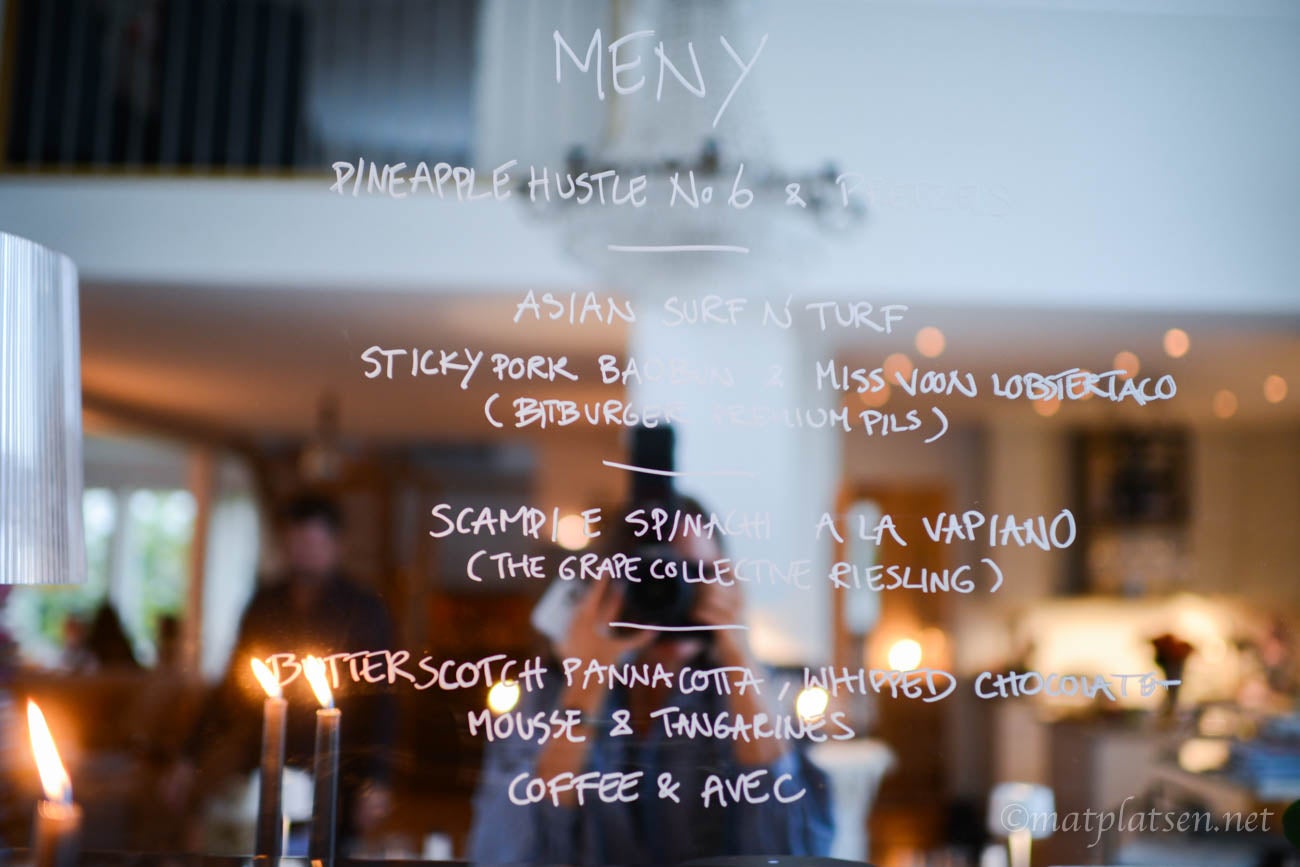 MENY
PINEAPPLE HUSTLE No 6 & BREEZES
ASIAN SURF N' TURF
STICKY PORK BAOBUN & MISS VOON LOBSTERTACO
(BITBURGER PREMIUM PILS)
SCAMPI E SPINACHI A LA VAPIANO
(THE GRAPE COLLECTIVE RIESLING)
BUTTERSCOTCH PANNACOTTA, WHIPPED CHOCOLATE-
MOUSSE & TANGARINES
COFFEE & AVEC
©matplatsen.net